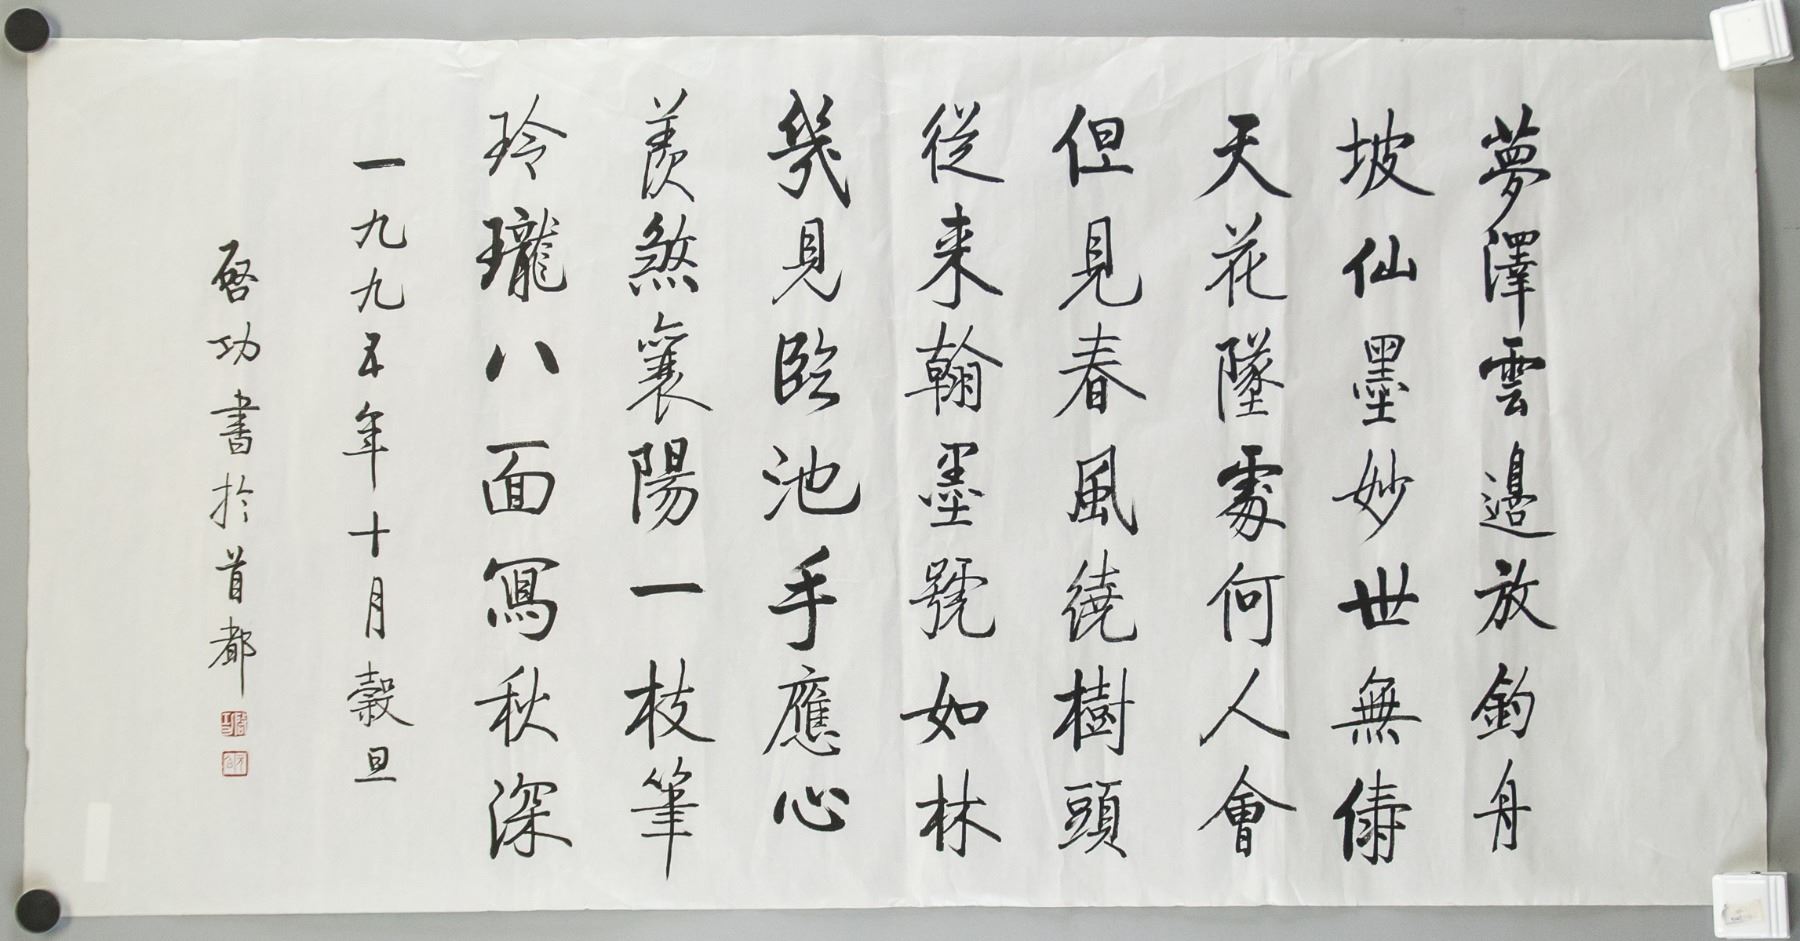 夢澤雲邊放釣舟
坡仙墨妙世無儔
天花墜處何人會
但見春風繞樹頭
從来翰墨號如林
幾見臨池手應心
羨煞襄陽一枝筆
玲瓏八面寫秋深
一九九五年十月穀旦
啟功書於首都